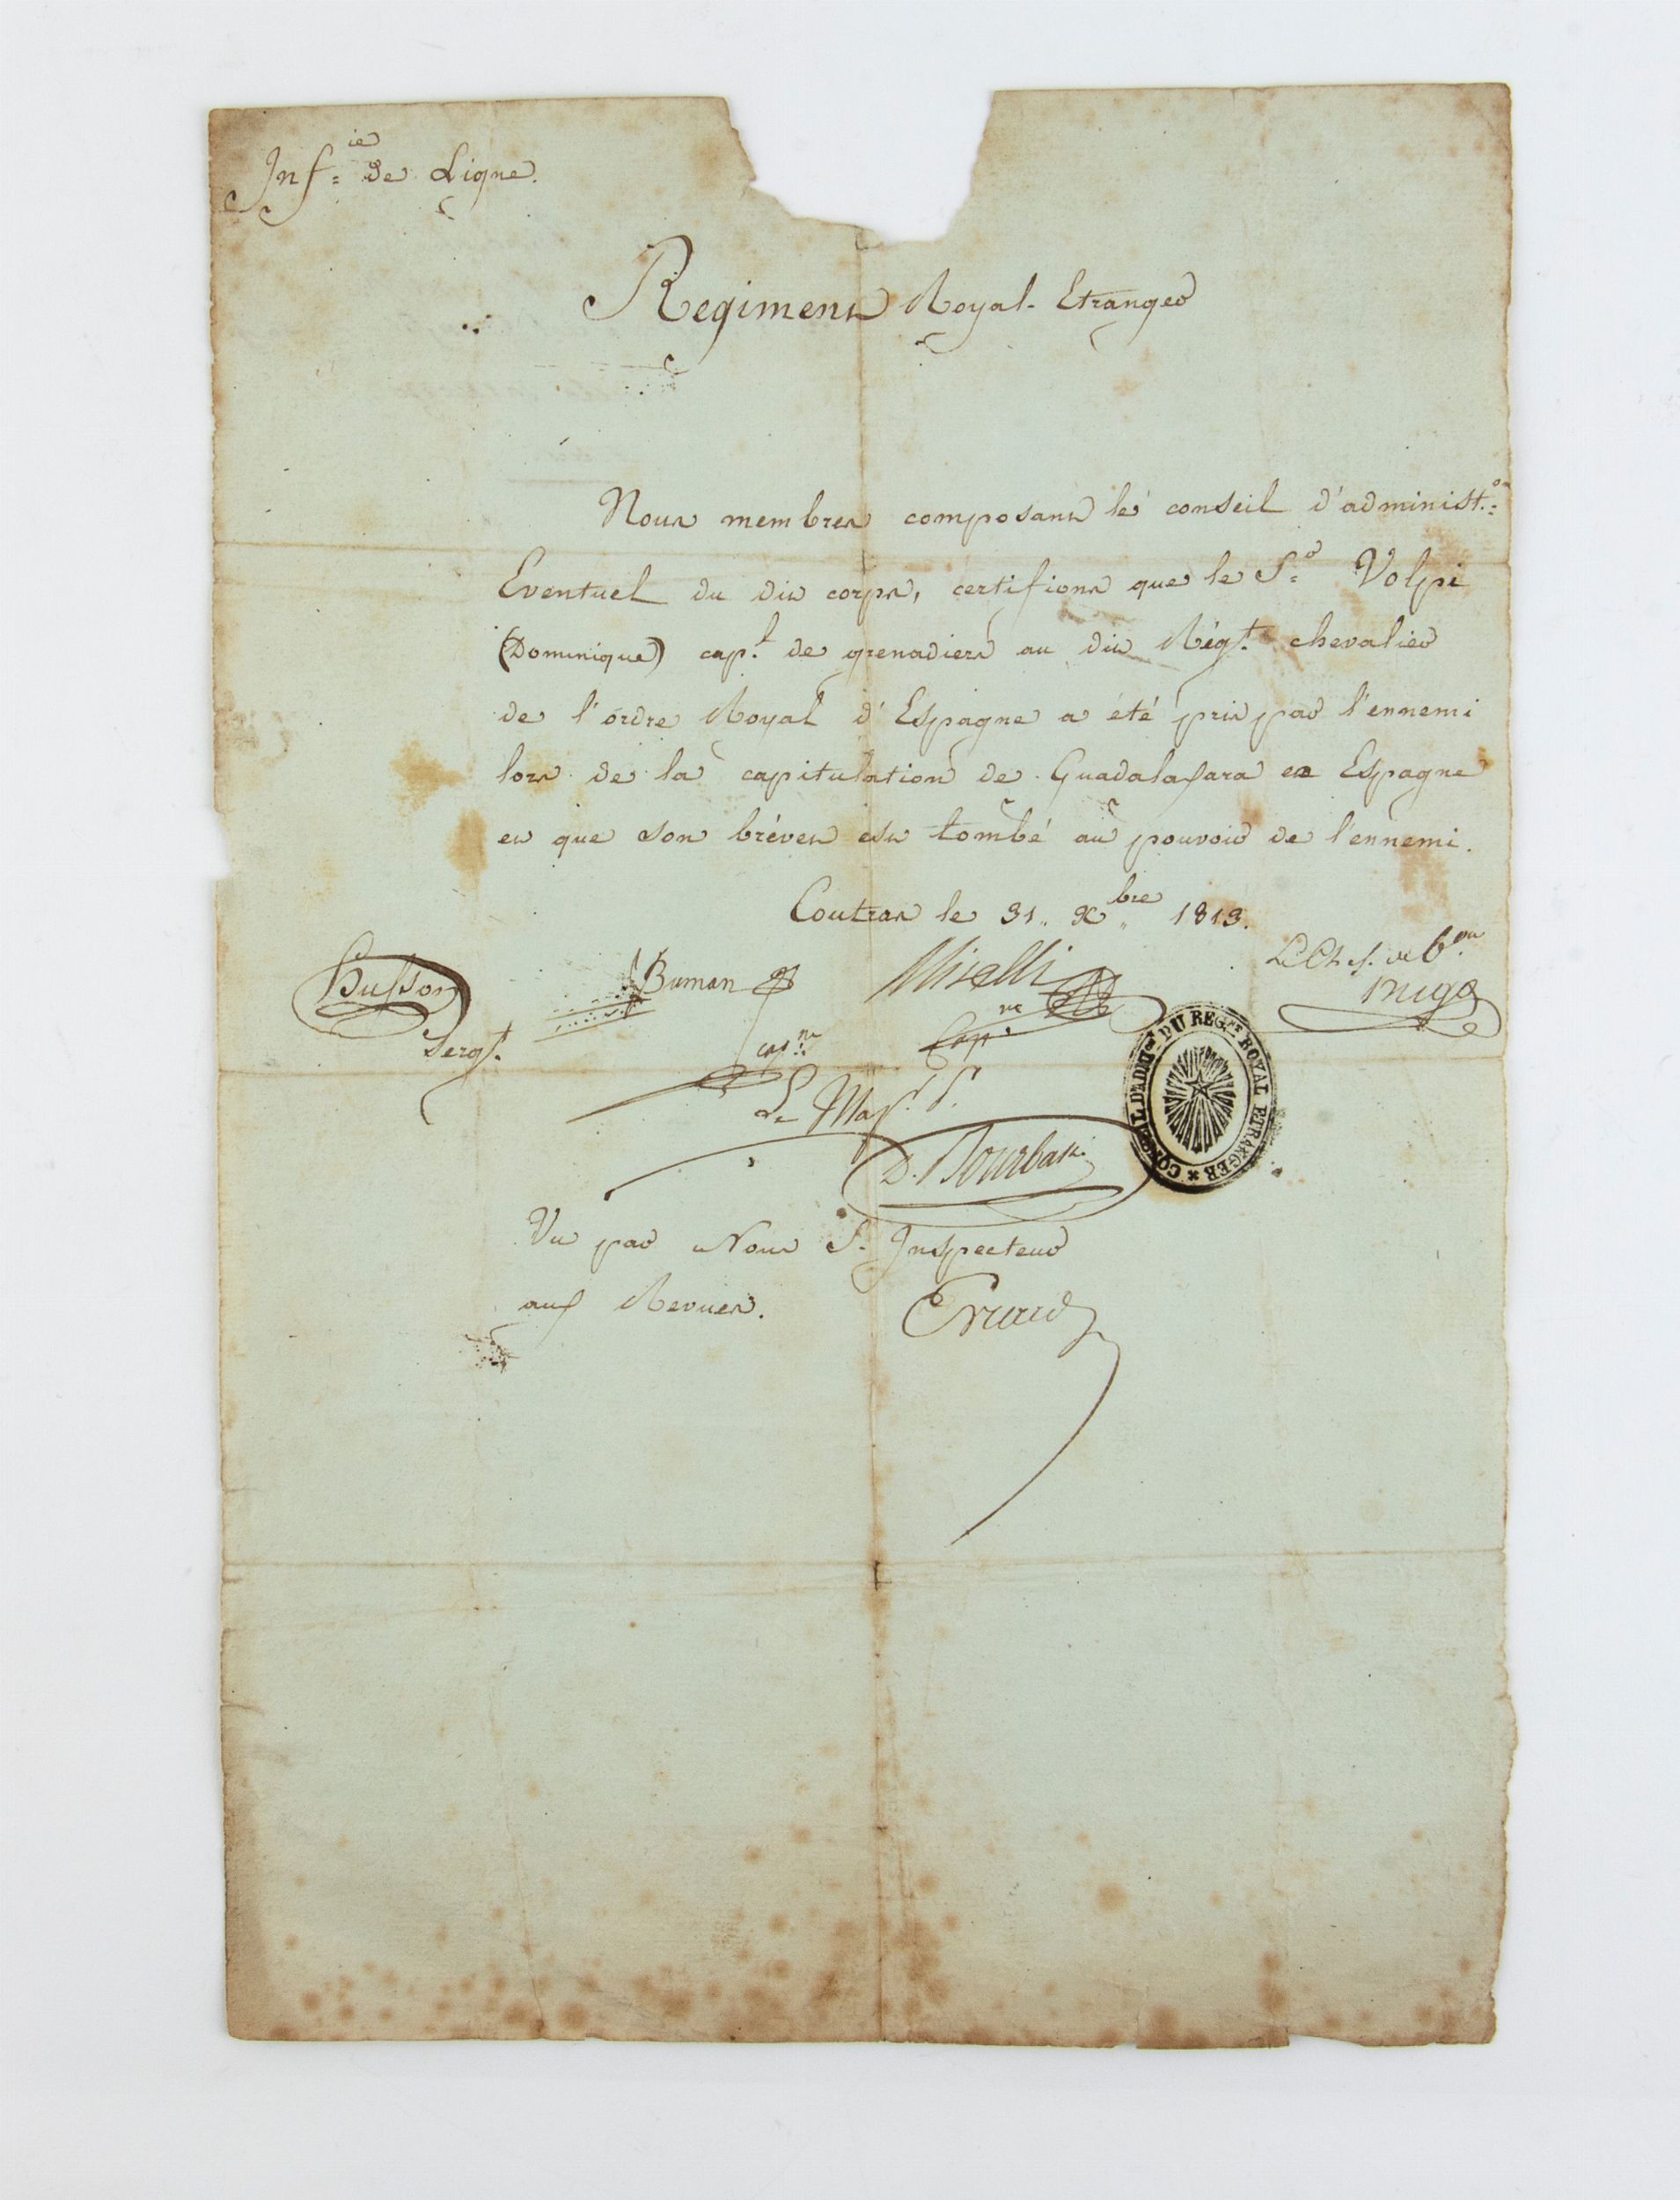 Inf.ie de Ligne.
Regiment Royal-Etranger
Nous membres composant le conseil d'administ.on
Eventuel du dit corps, certifions que le S.r Volpi
(Dominique) cap.t de grenadiers au dit Rég.t chevalier
de l'ordre Royal d'Espagne a été pris par l'ennemi
lors de la capitulation de Guadalaxara en Espagne
et que son brévet est tombé au pouvoir de l'ennemi.
Coutras le 31. Xbre 1813.
Husson Buman Miselli Le Chef de b.on
Serg.t cap.ne Cap.ne
Le Maj.r
D. Bourbaki
CONSEIL D'ADMon DU REGent ROYAL ETRANGER
Vu par Nous S. Inspecteur
aux Revues.